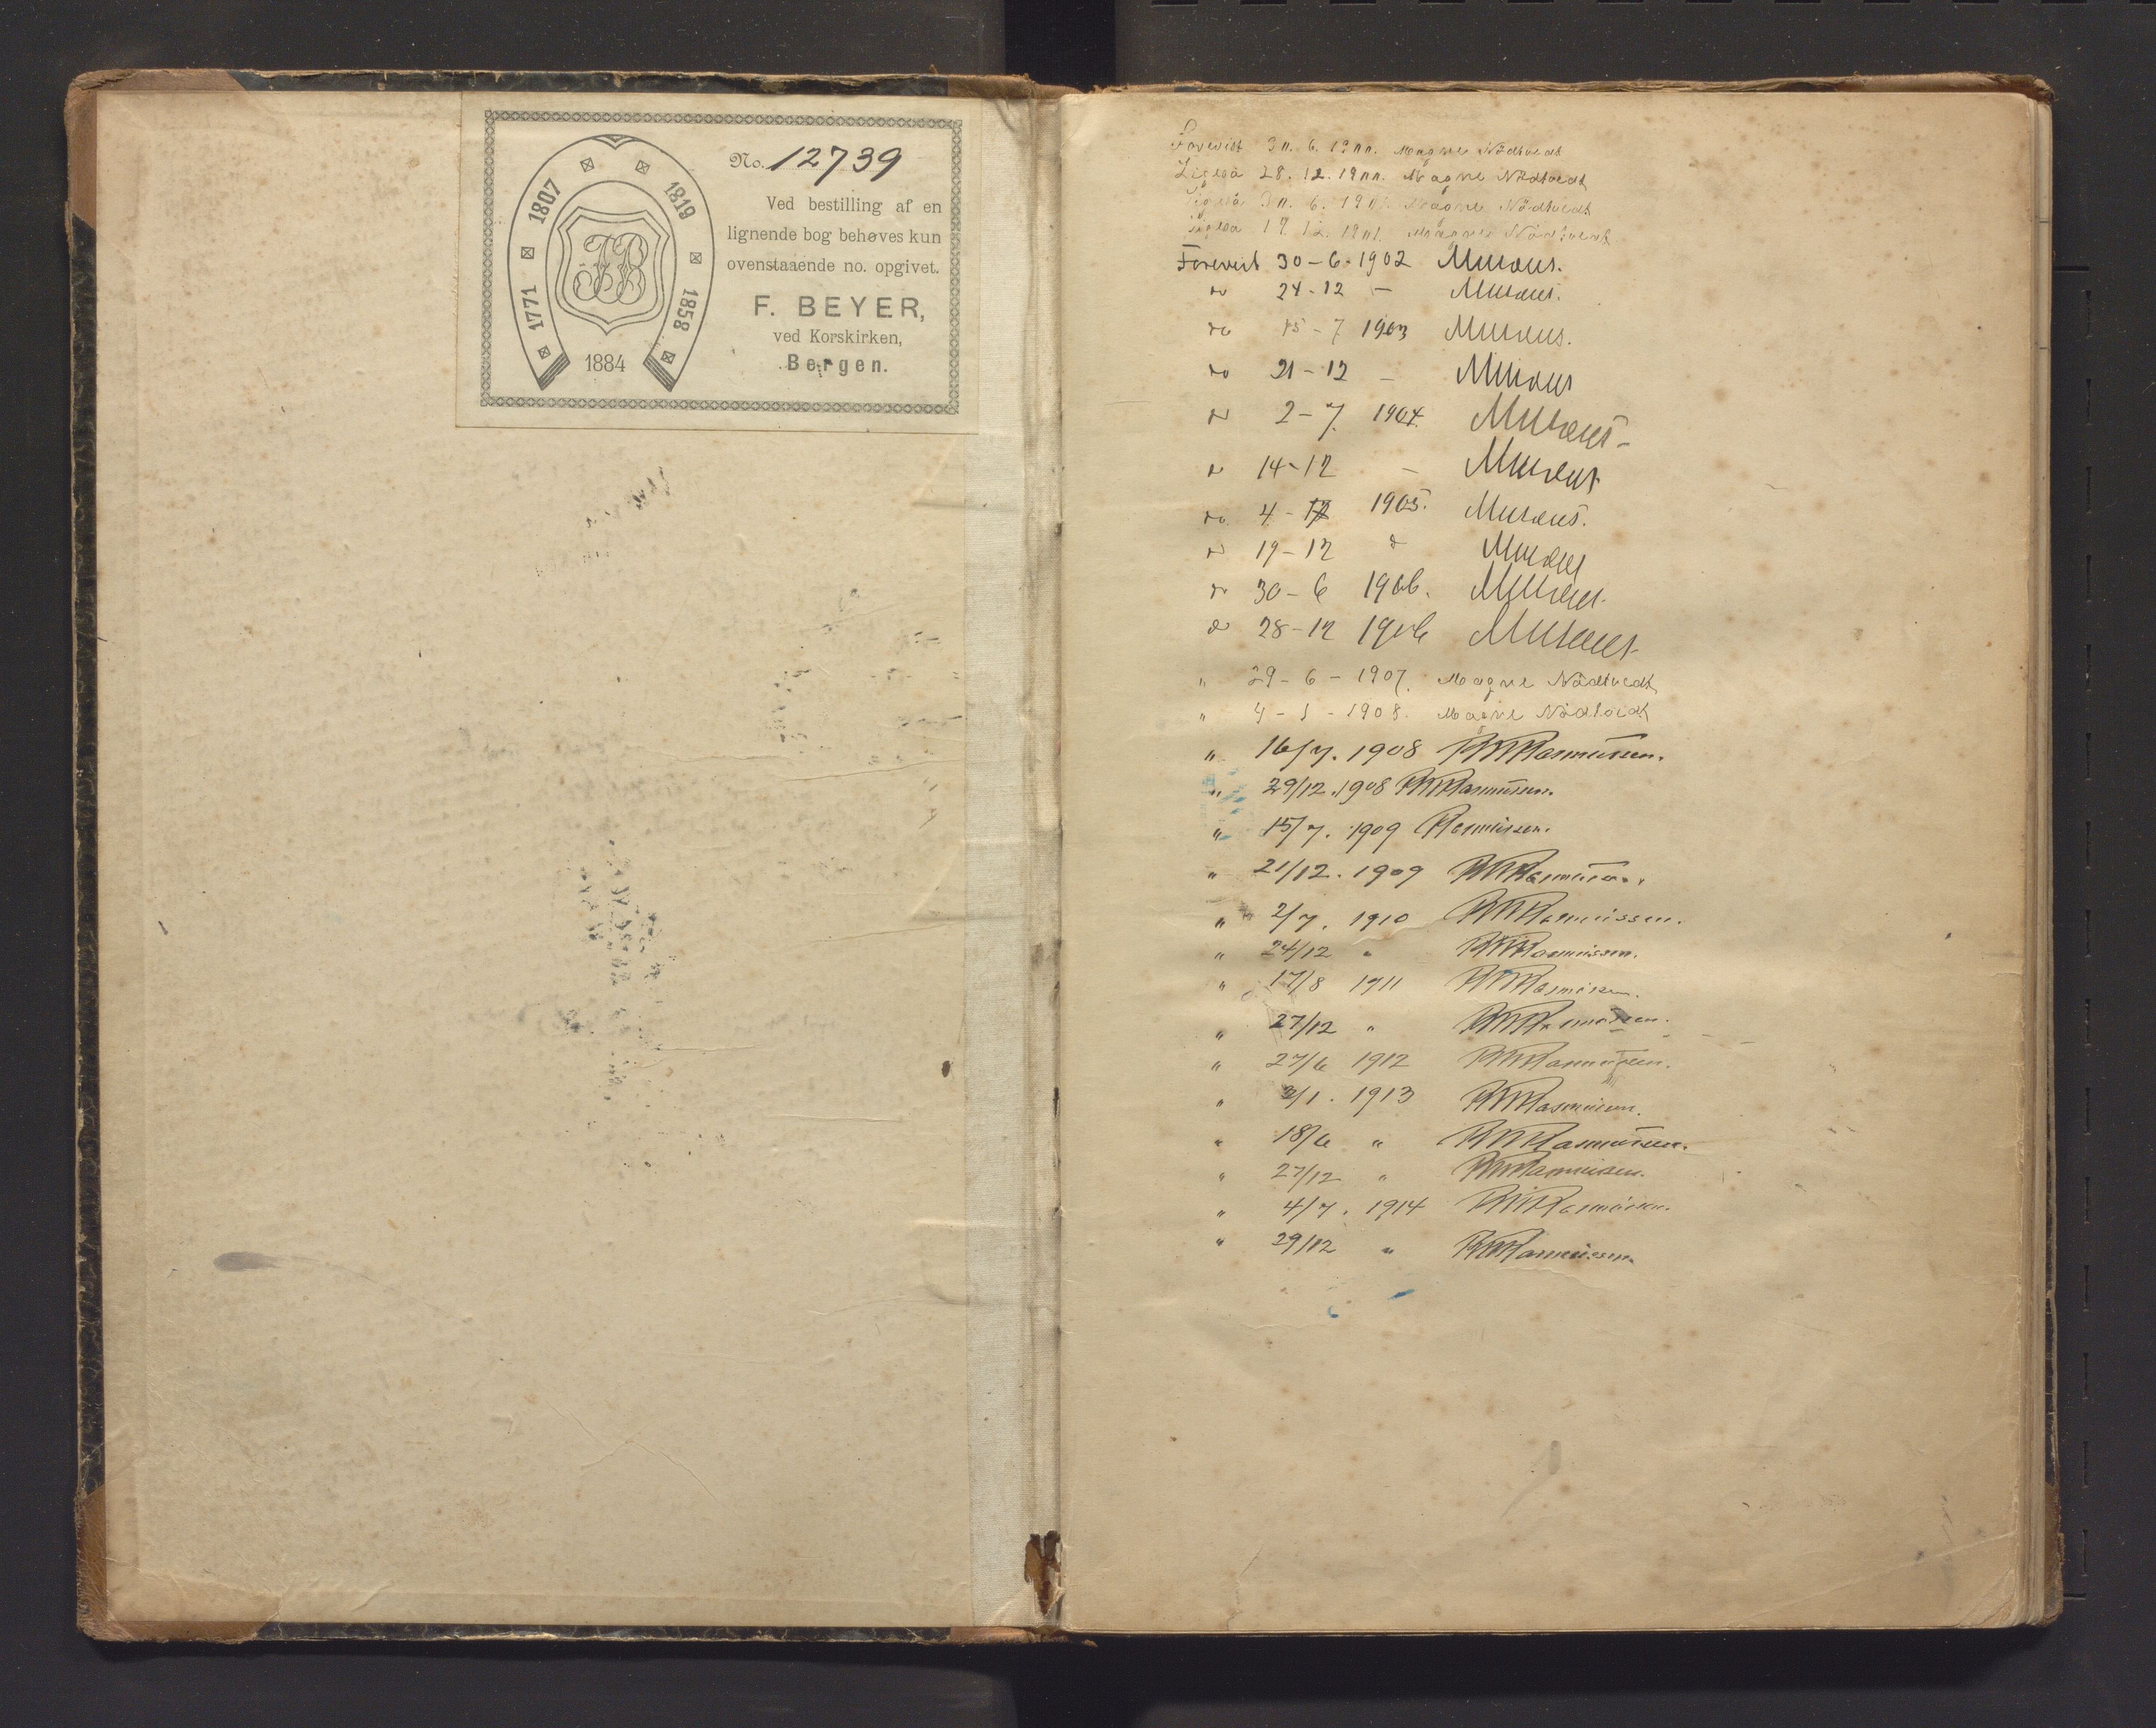 1771 1807 1819 1858
1884
No. 12739
Ved bestilling af en
lignende bog behøves kun
ovenstaaende no. opgivet.
F. BEYER,
ved Korskirken,
Bergen.
Forevist 30. 6. 1900. Magne Nådtvedt
Ligeså 28. 12. 1900. Magne Nådtvedt
Ligeså 30. 6. 1901. Magne Nådtvedt
Ligeså 17. 12. 1901. Magne Nådtvedt
Forevist 30-6-1902 Musæus.
do 24-12 - Musæus.
do 15-7 1903 Musæus.
do 21-12 - Musæus
do 2-7. 1904. Musæus-
do 14-12 - Musæus
do 4- 1905. Musæus.
do 19-12 Musæus
do 30-6 1906. Musæus.
do 28-12 1906 Musæus
" 29-6-1907. Magne Nådtvedt
" 4-1-1908. Magne Nådtvedt
" 16/7. 1908 Rasmussen.
" 29/12. 1908 Rasmussen.
" 15/7. 1909 Rasmussen.
" 21/12. 1909 Rasmussen.
" 2/7. 1910 Rasmussen.
" 24/12 " Rasmussen.
" 17/8 1911 Rasmussen.
" 27/12 " Rasmussen.
" 27/6 1912 Rasmussen.
" /1. 1913 Rasmussen.
" 18/6 " Rasmussen.
" 27/12 " Rasmussen.
" 4/7. 1914 Rasmussen.
" 29/12 " Rasmussen.